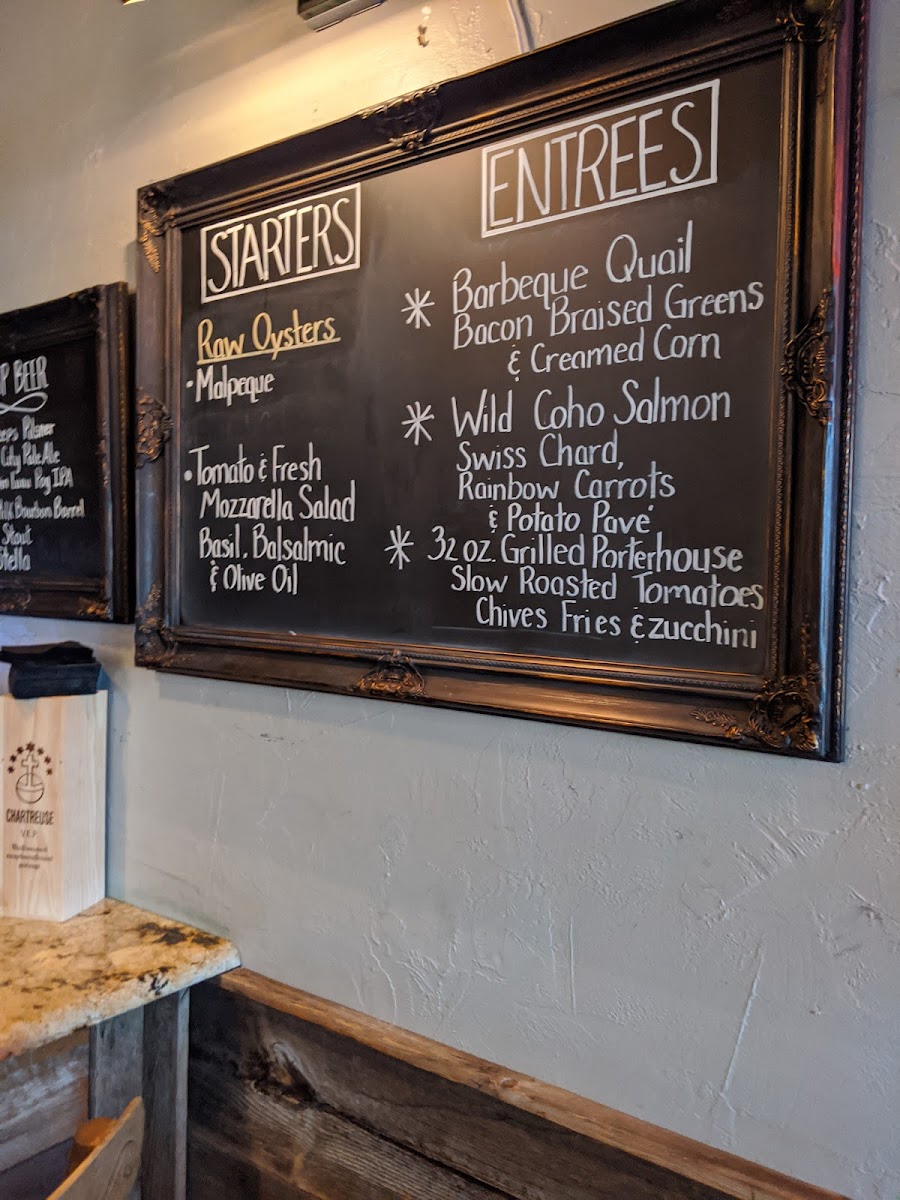 STARTERS
Raw Oysters
• Malpeque
• Tomato & Fresh
Mozzarella Salad
Basil, Balsalmic
& Olive Oil
ENTREES
* Barbeque Quail
Bacon Braised Greens
& Creamed Corn
* Wild Coho Salmon
Swiss Chard,
Rainbow Carrots
& Potato Pavé
* 32 oz. Grilled Porterhouse
Slow Roasted Tomatoes
Chives Fries & zucchini
BEER
Pilsner
City Pale Ale
Pog IPA
Bourbon Barrel
Stout
Stella
CHARTREUSE
V.E.P.